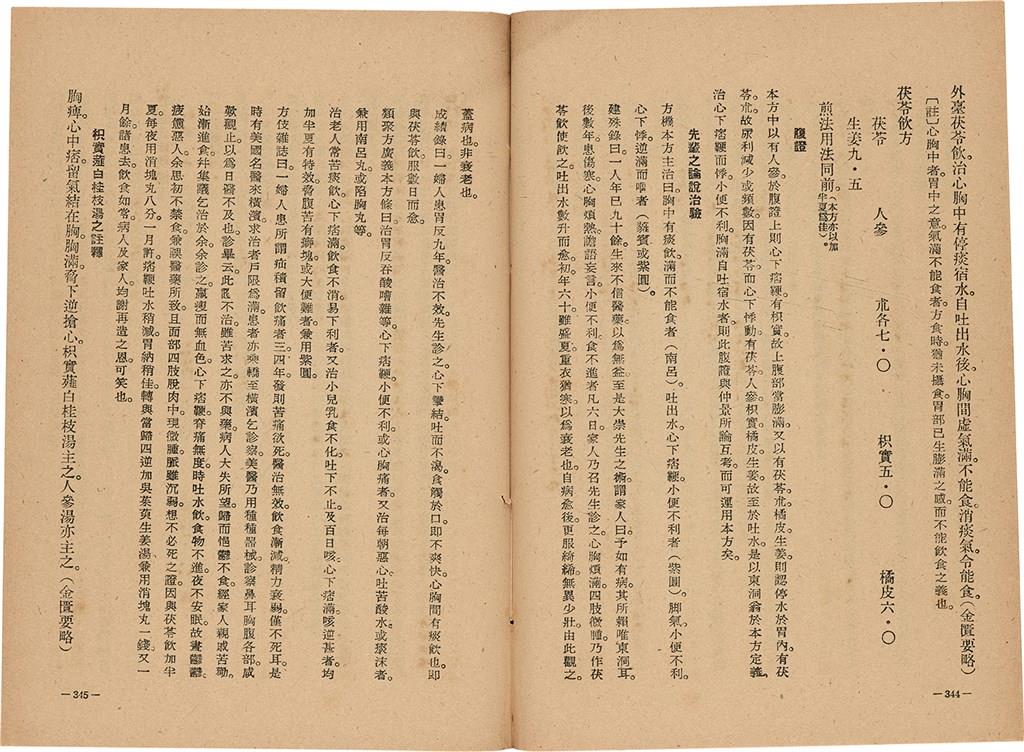 外臺茯苓飲治心胸中有停痰宿水自吐出水後心胸間虛氣滿不能食消痰氣令能食。(金匱要略)
〔註〕心胸中者。胃中之意。氣滿不能食者。方食時猶未攝。食胃部已生膨滿之感。而不能飲食之義也。
茯苓飲方
茯苓 人參 朮各七·〇 枳實五·〇 橘皮六·〇
生姜九·五
煎法用法同前。(本方亦以加半夏爲佳)。
腹證
本方中以有人參。於腹證上則心下痞鞕。有枳實。故上腹部當膨滿。又以有茯苓朮橘皮生姜。則認停水於胃內。有茯
苓朮。故尿利減少或頻數。因有茯苓。而心下悸動。有茯苓人參枳實橘皮生姜。故至於吐水。是以東洞翁於本方定義。
治心下痞鞕而悸。小便不利。胸滿自吐宿水者。則此腹證與仲景所論互考。而可運用本方矣。
先輩之論說治驗
方機本方主治曰。胸中有痰飲。滿而不能食者(南呂)。吐出水。心下痞鞕。小便不利者(紫圓)。脚氣小便不利。
心下悸。逆滿而嘔者(豨賓或紫圓)。
建殊錄曰。一人年已九十餘。生來不信醫藥。以爲無益。至是大崇先生之術。謂家人曰。予如有病。其所賴唯東洞耳。
後數年。患傷寒。心胸煩熱。譫語妄言。小便不利。食不進者。凡六日。家人乃召先生診之。心胸煩滿。四肢微腫。乃作茯
苓飲使飲之。吐出水數升而愈。初年六十。雖盛夏重衣猶寒。以爲衰老也。自病愈後。更服絺綌。無異少壯。由此觀之。
—344—
蓋病也。非衰老也。
成績錄曰。一婦人患胃反九年。醫治不效。先生診之。心下攣結。吐而不渴。食觸於口。即不爽快。心胸間有痰飲也。即
與茯苓飲。服數日而愈。
類聚方廣義本方條曰。治胃反吞酸嘈雜等。心下痞鞕。小便不利。或心胸痛者。又治每朝惡心。吐苦酸水或痰沫者。
兼用南呂丸。或陷胸丸等。
治老人常苦痰飲。心下痞滿。飲食不消。易下利者。又治小兒乳食不化。吐下不止。及百日咳。心下痞滿。咳逆甚者。均
加半夏有特效。脅腹苦有癖塊。或大便難者。兼用紫圓。
方伎雜誌曰。一婦人患所謂疝積留飲痛者。三四年。發則苦痛欲死。醫治無效。飲食漸減。精力衰弱。僅不死耳。是
時有美國名醫來橫濱。求治者戶限爲滿。患者亦乘轎至橫濱。乞診察。美醫乃用種種器械。診察鼻耳胸腹各部。咸
歎觀止。以爲日醫不及也。診畢云。此證不治。雖苦求之。亦不與藥。病人大失所望。歸而悒鬱不食。經家人親戚苦勸。
始漸進食。幷集議乞治於余。余診之。羸瘦而無血色。心下痞鞕。脊痛無度。時吐水。飲食物不進。夜不安眠。故晝鬱鬱。
疲憊惡人。余思初不禁食。兼誤醫藥所致。且面部四肢脫肉中。現微腫。脈雖沉弱。想不必死之證。因與茯苓飲加半
夏。每夜用消塊丸八分。一月許。痞鞕吐水稍減。胃納稍佳。轉與當歸四逆加吳茱萸生姜湯。兼用消塊丸一錢。又一
月餘。諸患去。飲食如常。病人及家人。均謝再造之恩。可笑也。
枳實薤白桂枝湯之註釋
胸痺心中痞。留氣結在胸。胸滿脅下逆搶心。枳實薤白桂枝湯主之。人參湯亦主之。(金匱要略)
—345—